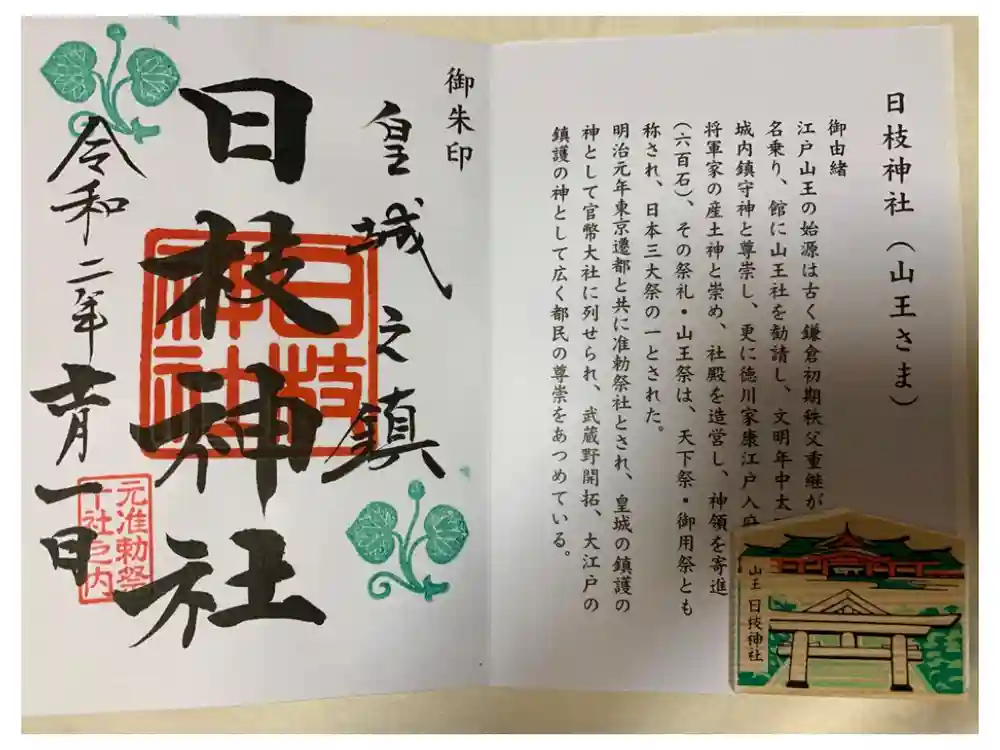 日枝神社(山王さま)
御由緒
江戸山王の始源は古く鎌倉初期秩父重継が
名乗り、館に山王社を勧請し、文明年中太
城内鎮守神と尊崇し、更に徳川家康江戸入府
将軍家の産土神と崇め、社殿を造営し、神領を寄進
(六百石)、その祭礼・山王祭は、天下祭・御用祭とも
称され、日本三大祭の一とされた。
明治元年東京遷都と共に准勅祭社とされ、皇城の鎮護の
神として官幣大社に列せられ、武蔵野開拓、大江戸の
鎮護の神として広く都民の尊崇をあつめている。
御朱印
皇城之鎮
日枝神社
日枝
神社
令和二年十一月一日
元准勅祭
十社之内
山王 日枝神社